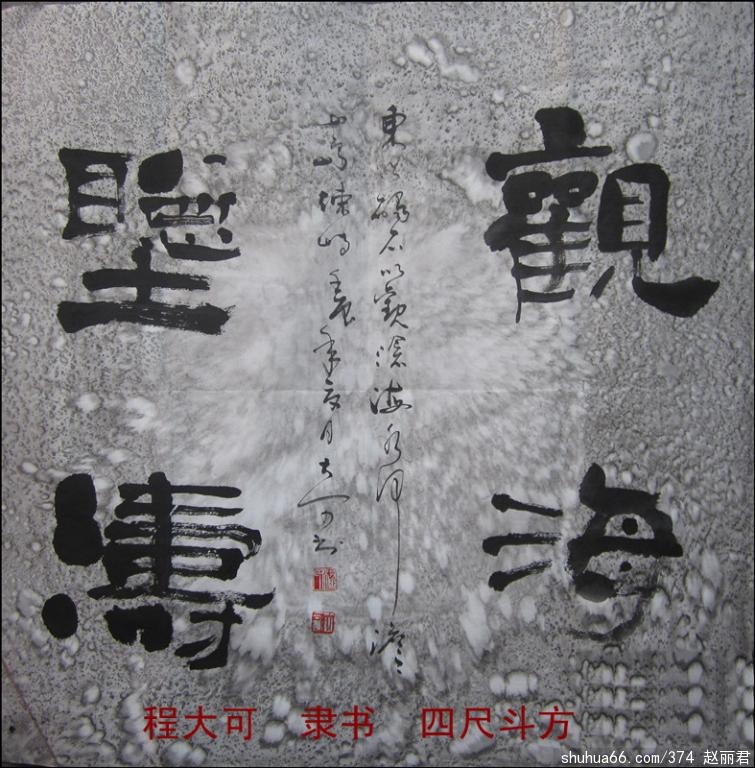 觀海
聽濤
東临碣石以觀滄海水何澹澹
山島竦峙壬辰年夏月大可书
程大可 隶书 四尺斗方
shuhua66.com/374 赵丽君